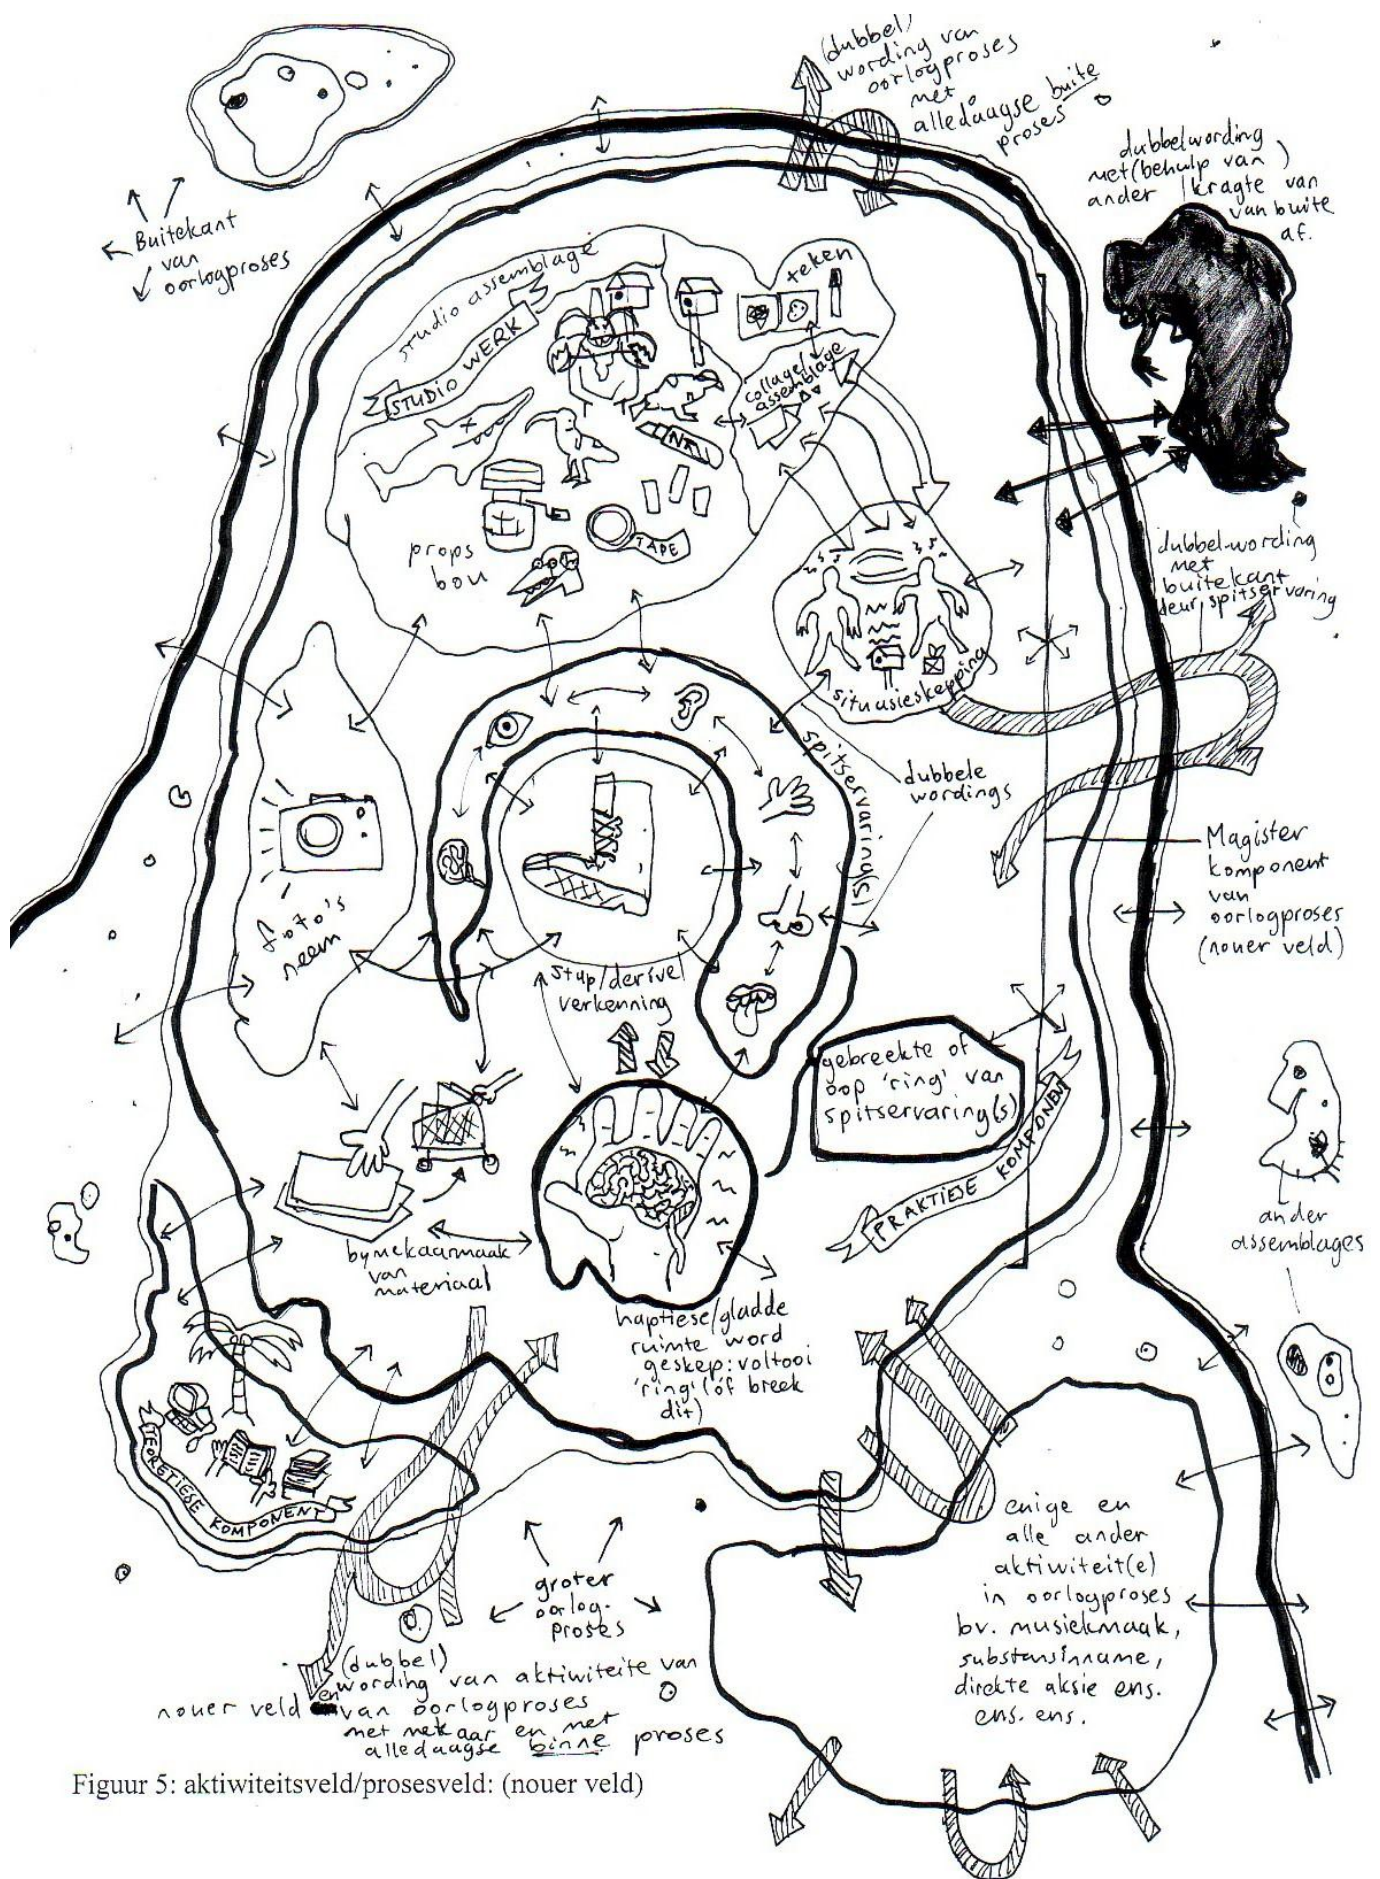 (dubbel)
wording van
oorlogproses
met
alledaagse buite
proses
dubbelwording
met (behulp van )
ander kragte van
van buite
af.
Buitekant
van
oorlogproses
studio assemblage
STUDIO WERK
teken
collage/
assemblage
props
bou
TAPE
situasieskepping
dubbel-wording
met
buitekant
deur spitservaring
spitservaring(s)
dubbele
wordings
Magister
komponent
van
oorlogproses
(nouer veld)
foto's
neem
stap/derive/
verkenning
gebreekte of
oop 'ring' van
spitservaring(s)
PRAKTIESE KOMPONENT
ander
assemblages
bymekaarmaak
van
materiaal
haptiese/gladde
ruimte word
geskep: voltooi
'ring' (óf breek
dit)
TEORETIESE KOMPONENT
enige en
alle ander
aktiwiteit(e)
in oorlogproses
bv. musiekmaak,
substansinname,
direkte aksie ens.
ens. ens.
groter
oorlog-
proses
(dubbel)
wording van aktiwiteite van
nouer veld en van oorlogproses
met mekaar en met
alledaagse binne proses
Figuur 5: aktiwiteitsveld/prosesveld: (nouer veld)